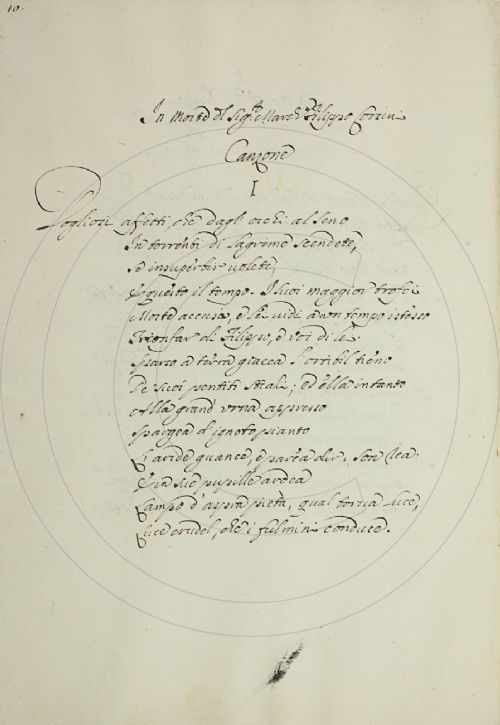 10.
In Morte del Sig.re March.e Filippo Corsini
Canzone
I
Dogliosi affetti che dagl' occhi al seno
In torrenti di lagrime scendete,
Se insuperbir volete,
È questo il tempo. I suoi maggior trofei
Morte accusa, e la vidi a un tempo istesso
Trionfar di Filippo, e poi di lei.
Sparso a terra giacea l'orribil pieno
De suoi pentiti strali; ed ella intanto
Alla grand' urna appresso
Spargea d'ignoto pianto
L'aride guance, e parea dir: son rea.
E in sue pupille ardea
Lampo d'aspra pietà, qual torva luce,
Luce crudel, che i fulmini conduce.